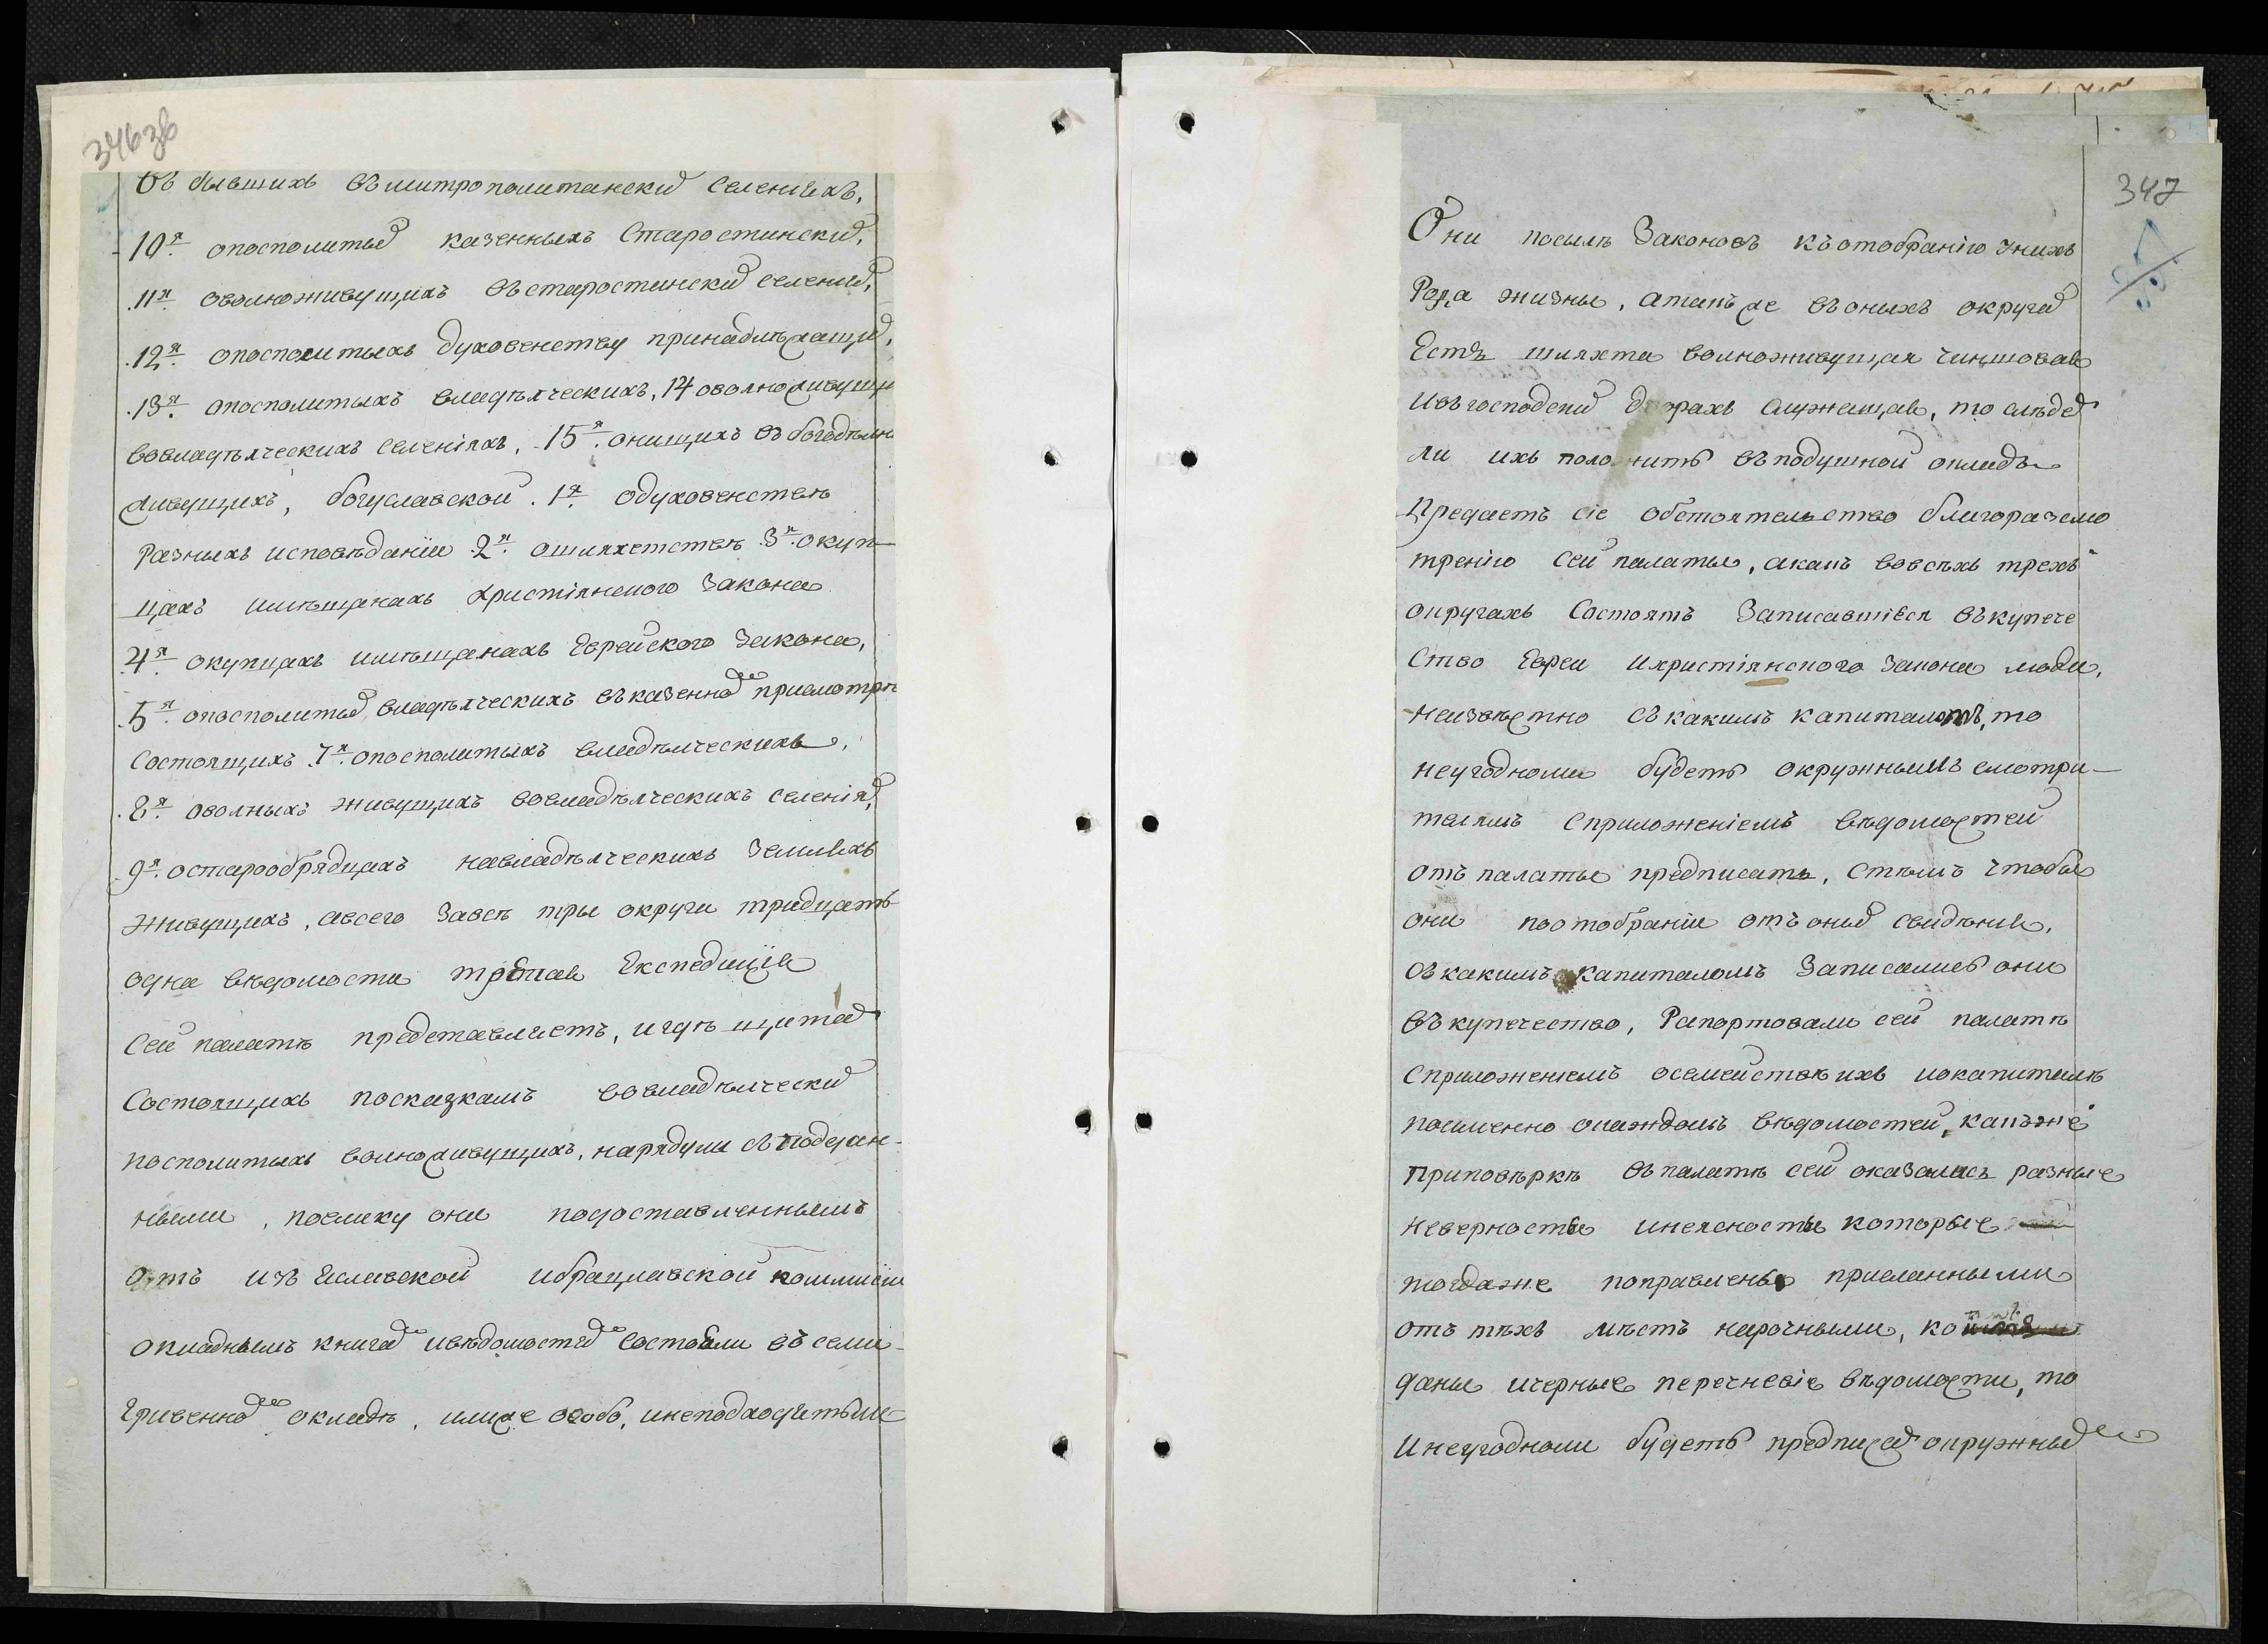 346зв
въ бывшихъ въ митрополитански селеніяхъ,
10я опосполитых казенныхъ Старостински,
11я оволноживущихъ въ старостински селения,
12я опосполитыхъ духовенству принадлежащи,
13я опосполитыхъ владѣлческихъ, 14 оволноживущи
вовладѣлческихъ селеніяхъ, 15я онищихъ въ богоделни
живущихъ, богуславской 1я одуховенствѣ
разныхъ исповѣданіи 2я ошляхетствѣ 3я окуп-
цахъ имѣщанахъ христіянского Закона
4я окупцахъ имѣщанахъ Еврейского Закона,
5я опосполитых владѣлческихъ въ казенно присмотрѣ
состоящихъ 7я опосполитыхъ владѣлческихъ,
8я оволныхъ живущихъ вовладѣлческихъ селения,
9я остарообрядцахъ навладѣлческихъ Землѣхъ
живущихъ, авсего Завсѣ тры округи тридцать
одна вѣдомости третая Експедиція
сей палатѣ представляетъ, игдѣ щита
состоящихъ посказкамъ вовладѣлчески
посполитыхъ волноживущихъ, нарядули съ подан-
ными, поелику они подоставленнымъ
отъ изъ Еславской ибрацлавской коммисіи
окладнымъ книга ивѣдомостя состояли въ семи-
гривенно окладѣ, илиже особо, инеподходятьли
347
Они посилѣ Законовъ къ отобранію унихъ
Рода жизны, атакъ же въ онихъ округа
Есть шляхта волноживущая чиншовая
ивъ господски дворахъ служащая, то слѣдуе
ли ихъ положить въ подушной окладъ
Предаетъ сіе обстоятельство благоразсмо
трению сей палаты, акакъ вовсѣхъ трехъ
округахъ состоятъ Записавшіеся въ купече
ство Евреи ихристіянского Закона люди,
неизвѣстно съ какимъ капиталомъ, то
неугодноли будетъ окружнымъ смотри-
телямъ сприложеніемъ вѣдомостей
отъ палаты предписать, стѣмъ чтобы
они поотобраніи отъ них свидѣния,
съ какимъ капиталомъ Записались они
въ купечество, Рапортовали сей палатѣ
сприложениемъ осемействѣ ихъ иокапиталѣ
поименно окаждомъ вѣдомостей, какъже
приповѣркѣ въ палатѣ сей оказались разные
неверносты инеясносты которые
тогдаже поправлены присланными
отъ тѣхъ мѣстъ нарочными, ко
даны ичерные перечневіе вѣдомости, то
инеугодноли будетъ предписа окружны